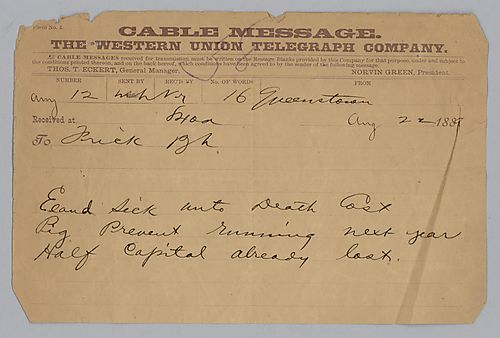 Form No. 1.
CABLE MESSAGE.
THE WESTERN UNION TELEGRAPH COMPANY.
CABLE MESSAGES received for transmission must be written on the Message Blanks provided by this Company for that purpose, under and subject to
the conditions printed thereon, and on the back hereof, which conditions have been agreed to by the sender of the following message.
THOS. T. ECKERT, General Manager. NORVIN GREEN, President.
NUMBER SENT BY REC'D BY No. OF WORDS FROM
12 16 Queenstown
Received at Aug 22 188
To Frick
Sick unto Death Cost
Pig Prevent running next year
Half Capital already lost.